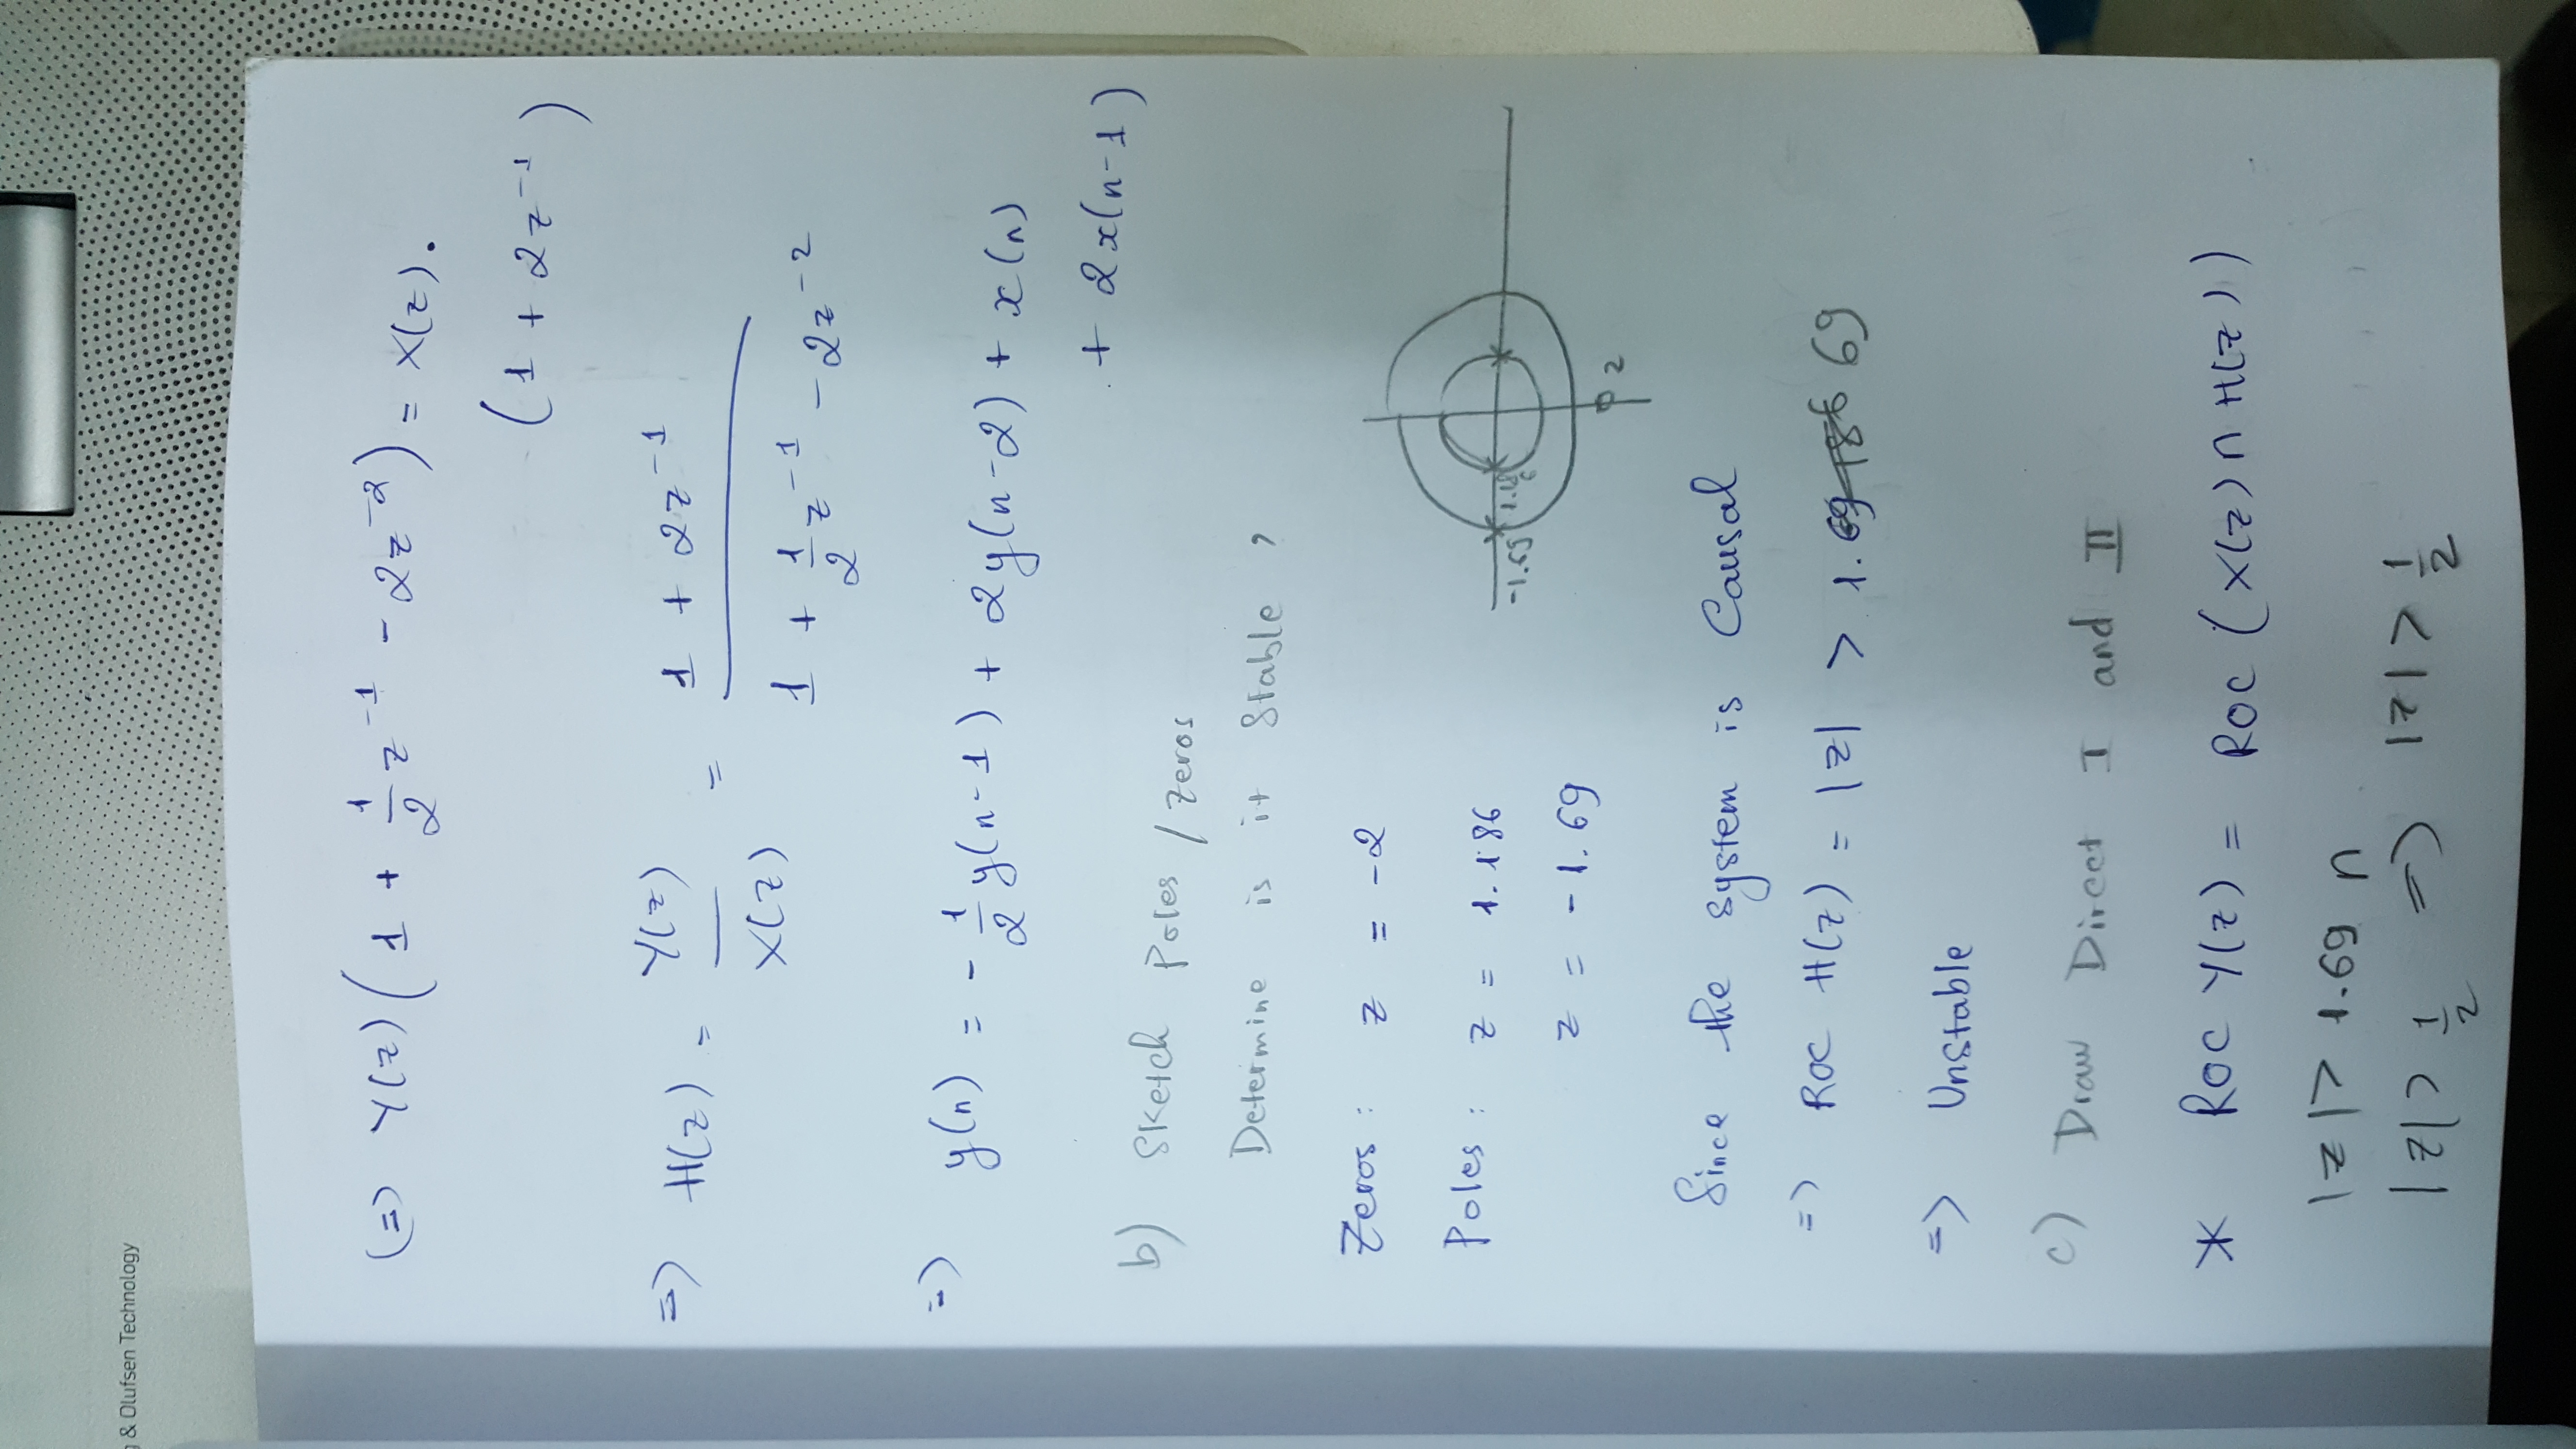 & Olufsen Technology
(=) Y(z) ( 1 + 1/2 z^-1 - 2z^-2 ) = X(z).
( 1 + 2z^-1 )
=> H(z) = Y(z) / X(z) = (1 + 2z^-1) / (1 + 1/2 z^-1 - 2z^-2)
=> y(n) = - 1/2 y(n-1) + 2y(n-2) + x(n)
+ 2x(n-1)
b) Sketch Poles / Zeros
Determine is it Stable ?
Zeros : z = -2
Poles : z = 1.186
z = -1.69
-1.69 1.186
2
Since the system is Causal
=> ROC H(z) = |z| > 1.69
=> Unstable
c) Draw Direct I and II
* ROC Y(z) = ROC ( X(z) ∩ H(z) )
|z| > 1.69 ∩
|z| > 1/2 => |z| > 1/2